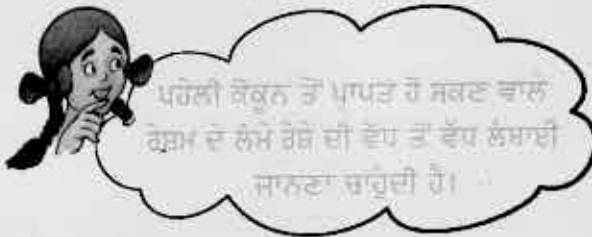 ਪਹੇਲੀ ਕੋਕੂਨ ਤੋਂ ਪ੍ਰਾਪਤ ਹੋ ਸਕਣ ਵਾਲੇ
ਰੇਸ਼ਮ ਦੇ ਲੰਮੇ ਰੇਸ਼ੇ ਦੀ ਵੱਧ ਤੋਂ ਵੱਧ ਲੰਬਾਈ
ਜਾਨਣਾ ਚਾਹੁੰਦੀ ਹੈ।